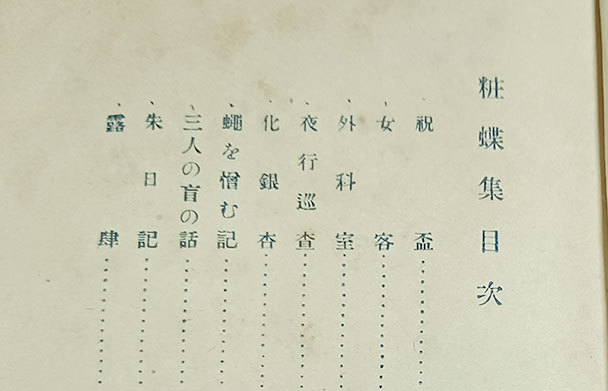 粧蝶集目次
、祝盃…………
、女客…………
、外科室…………
、夜行巡査…………
、化銀杏…………
、蠅を憎む記…………
、三人の盲の話…………
、朱日記…………
、露肆…………